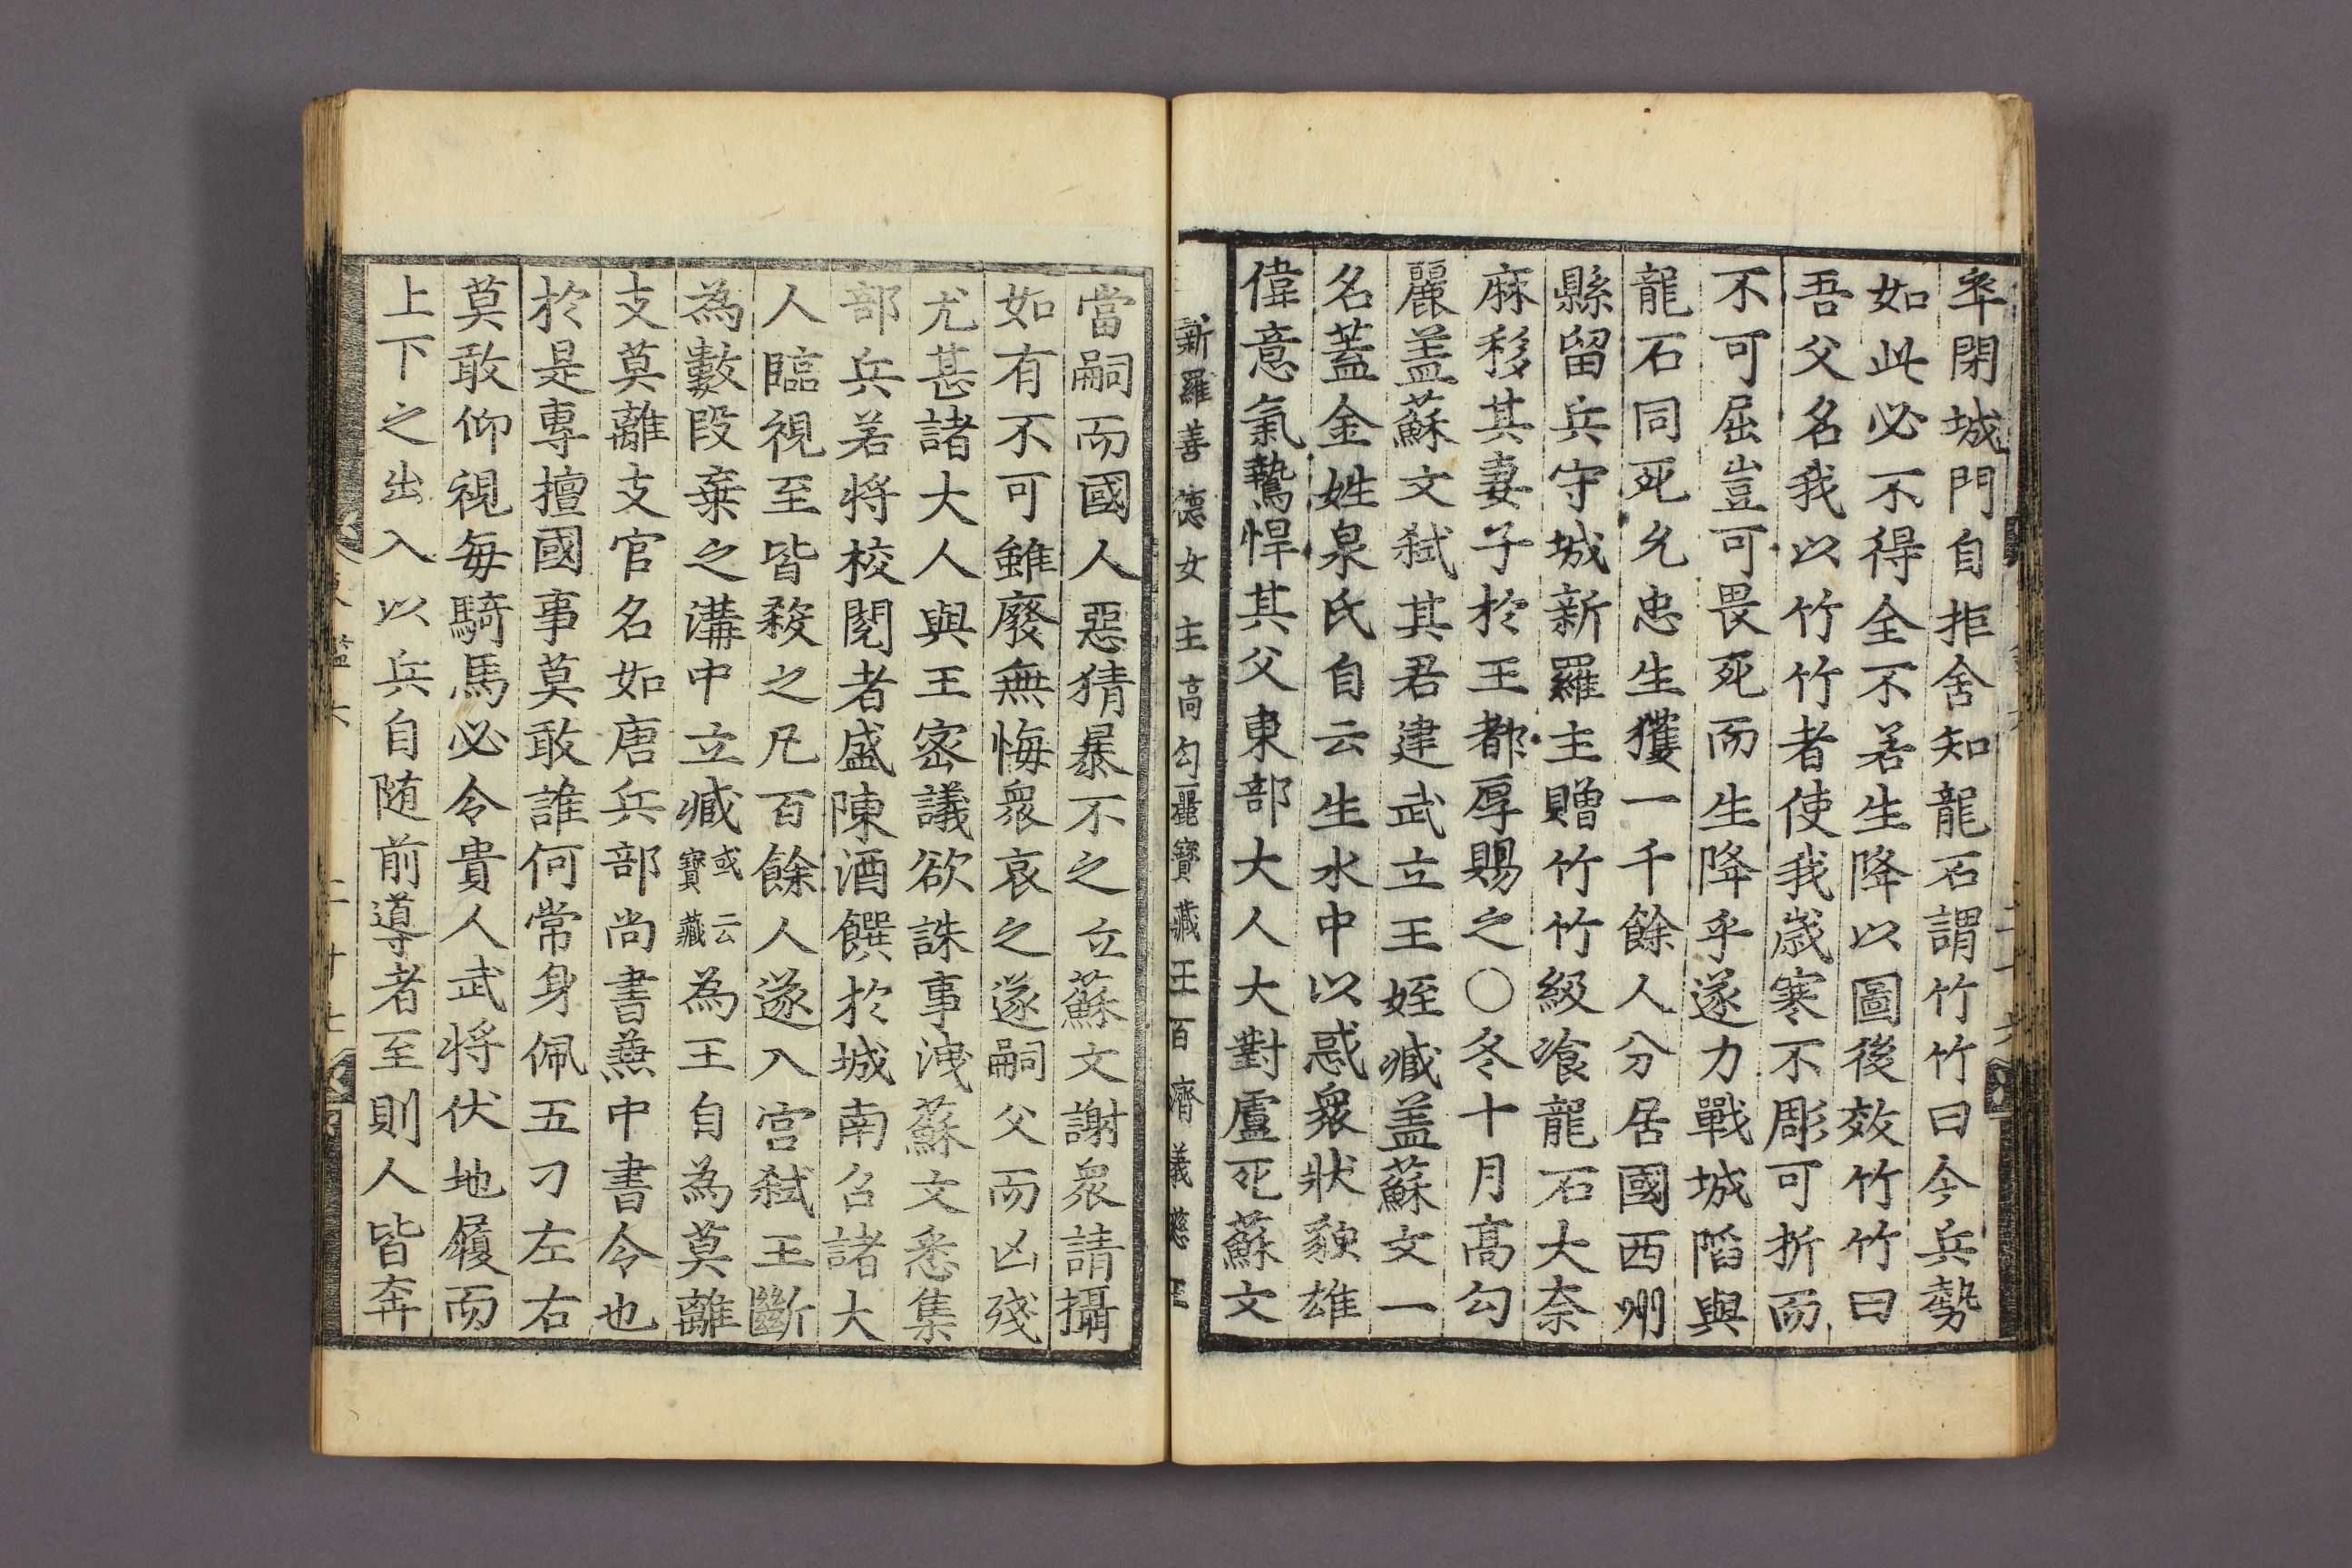 卒閉城門自拒舍知龍石謂竹竹曰今兵勢
如此必不得全不若生降以圖後效竹竹曰
吾父名我以竹竹者使我歲寒不彫可折而
不可屈豈可畏死而生降乎遂力戰城陷與
龍石同死允忠生獲一千餘人分居國西州
縣留兵守城新羅主贈竹竹級飡龍石大奈
麻移其妻子於王都厚賜之○冬十月高勾
麗盖蘇文弑其君建武立王姪臧盖蘇文一
名蓋金姓泉氏自云生水中以惑衆狀貌雄
偉意氣驁悍其父東部大人大對盧死蘇文
新羅善德女主高勾麗寶藏王百濟義慈王
當嗣而國人惡猜暴不之立蘇文謝衆請攝
如有不可雖廢無悔衆哀之遂嗣父而凶殘
尤甚諸大人與王密議欲誅事洩蘇文悉集
部兵若將校閱者盛陳酒饌於城南召諸大
人臨視至皆殺之凡百餘人遂入宮弑王斷
為數段棄之溝中立臧或云寶藏為王自為莫離
支莫離支官名如唐兵部尚書兼中書令也
於是專擅國事莫敢誰何常身佩五刀左右
莫敢仰視每騎馬必令貴人武将伏地履而
上下之出入以兵自随前導者至則人皆奔